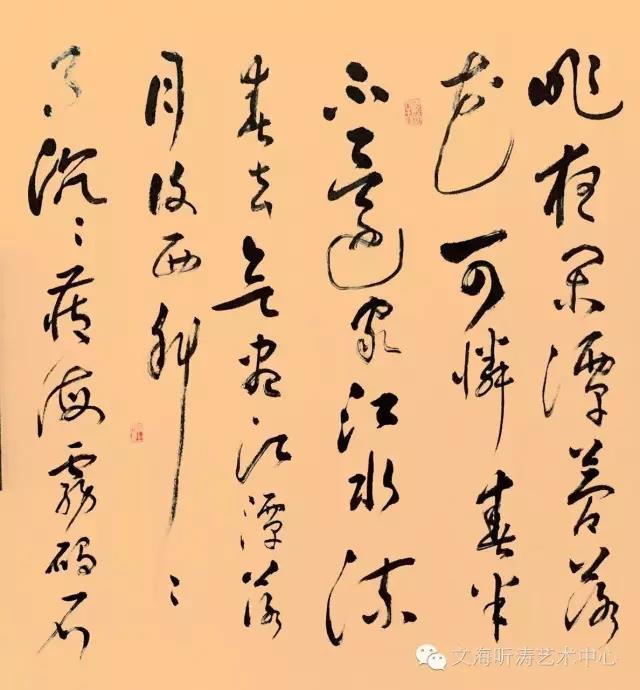 昨夜閑潭夢落
花可憐春半
不還家江水流
春去欲盡江潭落
月復西斜〻
月沉〻藏海霧碣石
文海听涛艺术中心